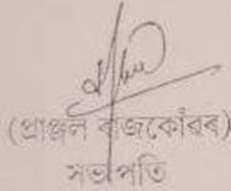 (প্ৰাঞ্জল ৰাজকোঁৱৰ)
সভাপতি